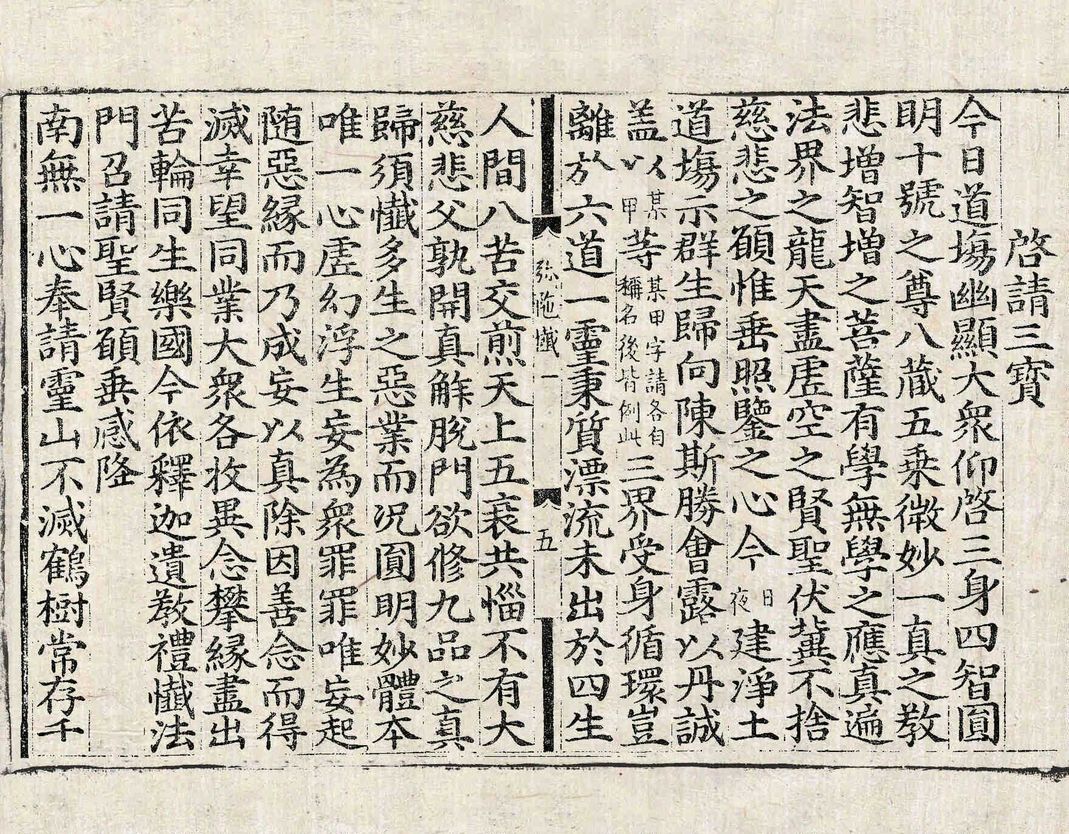 啓請三寶
今日道塲幽顯大衆仰啓三身四智圓
明十號之尊八藏五乗微妙一真之教
悲增智增之菩薩有學無學之應真遍
法界之龍天盡虗空之賢聖伏冀不捨
慈悲之願惟垂照鑒之心今日夜建淨土
道塲示群生歸向陳斯勝會露以丹誠
盖以某甲等某甲字請各自稱名後皆例此三界受身循環豈
離於六道一靈秉質漂流未出於四生
弥陁懴一 五
人間八苦交煎天上五衰共惱不有大
慈悲父孰開真解脫門欲修九品之真
歸須懴多生之惡業而况圓明妙體本
唯一心虗幻浮生妄為衆罪罪唯妄起
随惡緣而乃成妄以真除因善念而得
滅幸望同業大衆各收異念攀緣盡出
苦輪同生樂國今依釋迦遺教禮懴法
門召請聖賢願垂感降
南無一心奉請靈山不滅鶴樹常存千